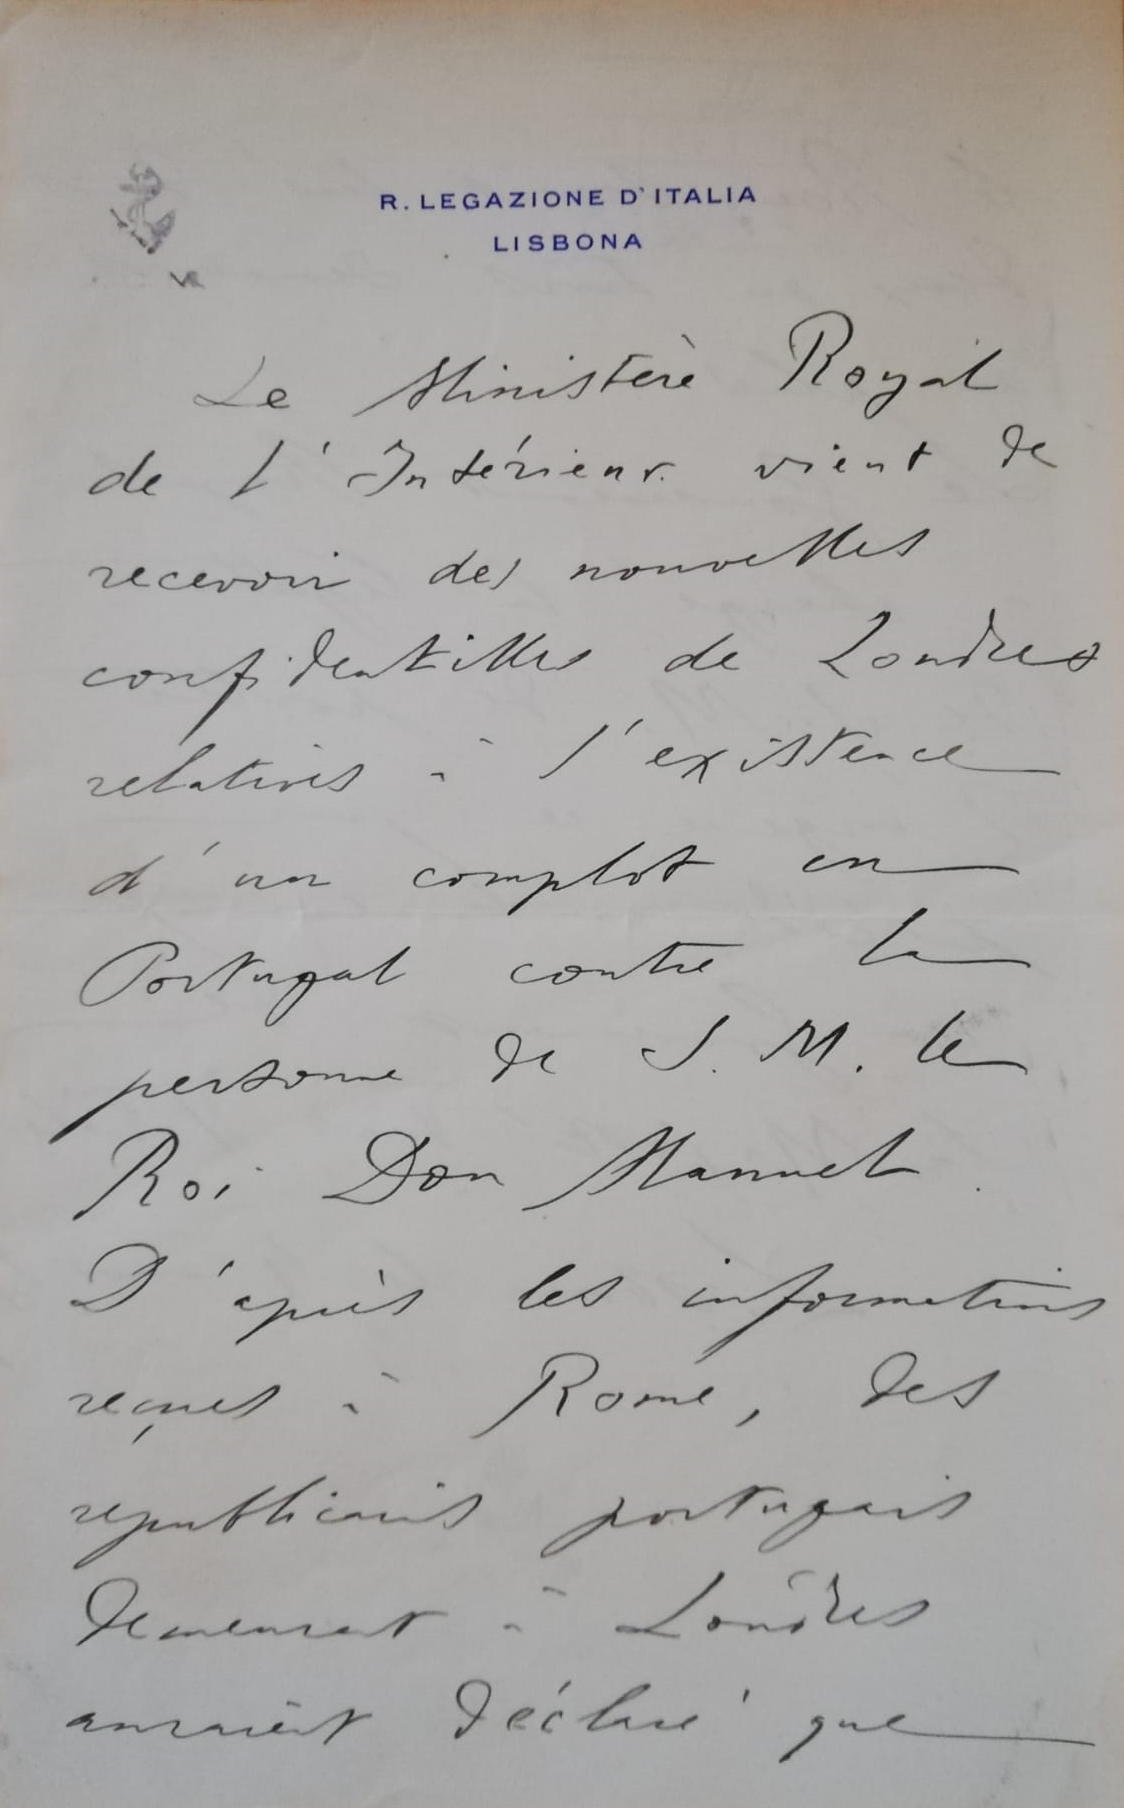 R. LEGAZIONE D'ITALIA
LISBONA
Le Ministère Royal
de l'Intérieur vient de
recevoir des nouvelles
confidentielles de Londres
relatives à l'existence
d'un complot en
Portugal contre la
personne de S. M. le
Roi Don Manuel.
D'après les informations
reçues à Rome, des
républicains portugais
demeurant à Londres
auraient déclaré que